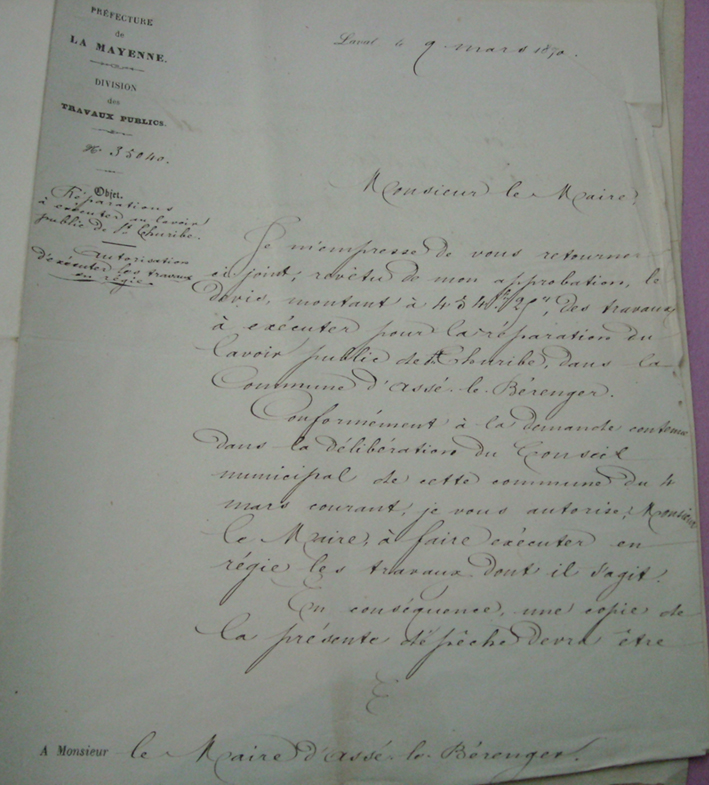 PRÉFECTURE
de
LA MAYENNE.
DIVISION
des
TRAVAUX PUBLICS.
N° 35040.
Objet.
Réparations
à exécuter au lavoir
public de St Thuribe.
Autorisation
d'exécuter les travaux
en régie.
Laval le 9 mars 1870.
Monsieur le Maire,
Je m'empresse de vous retourner
ci joint, revêtu de mon approbation, le
devis, montant à 434f 25c, des travaux
à exécuter pour la réparation du
lavoir public de St Thuribe, dans la
Commune d'Assé-le-Bérenger.
Conformément à la demande contenue
dans la délibération du Conseil
municipal de cette commune du 4
mars courant, je vous autorise, Monsieur
le Maire, à faire exécuter en
régie les travaux dont il s'agit.
En conséquence, une copie de
la présente dépêche devra être
A Monsieur le Maire d'Assé-le-Bérenger.